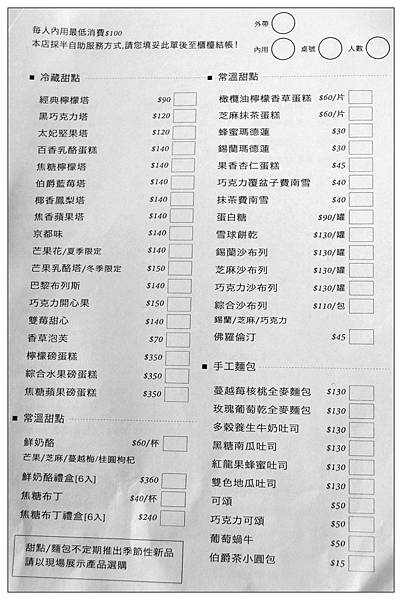 每人內用最低消費$100
本店採半自助服務方式,請您填妥此單後至櫃檯結帳!
外帶
內用 桌號 人數
■ 冷藏甜點
經典檸檬塔 $90
黑巧克力塔 $120
太妃堅果塔 $120
百香乳酪蛋糕 $140
焦糖檸檬塔 $140
伯爵藍莓塔 $140
椰香鳳梨塔 $140
焦香蘋果塔 $140
京都味 $140
芒果花/夏季限定 $140
芒果乳酪塔/冬季限定 $150
巴黎布列斯 $140
巧克力開心果 $150
雙莓甜心 $140
香草泡芙 $70
檸檬磅蛋糕 $350
綜合水果磅蛋糕 $350
焦糖蘋果磅蛋糕 $350
■ 常溫甜點
鮮奶酪 $60/杯
芒果/芝麻/蔓越梅/桂圓枸杞
鮮奶酪禮盒[6入] $360
焦糖布丁 $40/杯
焦糖布丁禮盒[6入] $240
甜點/麵包不定期推出季節性新品
請以現場展示產品選購
■ 常溫甜點
橄欖油檸檬香草蛋糕 $60/片
芝麻抹茶蛋糕 $60/片
蜂蜜瑪德蓮 $30
錫蘭瑪德蓮 $30
果香杏仁蛋糕 $45
巧克力覆盆子費南雪 $40
抹茶費南雪 $40
蛋白糖 $90/罐
雪球餅乾 $130/罐
錫蘭沙布列 $130/罐
芝麻沙布列 $130/罐
巧克力沙布列 $130/罐
綜合沙布列 $110/包
錫蘭/芝麻/巧克力
佛羅倫汀 $45
■ 手工麵包
蔓越莓核桃全麥麵包 $130
玫瑰葡萄乾全麥麵包 $130
多穀養生牛奶吐司 $130
黑糖南瓜吐司 $130
紅龍果蜂蜜吐司 $130
雙色地瓜吐司 $130
可頌 $50
巧克力可頌 $50
葡萄蝸牛 $50
伯爵茶小圓包 $15